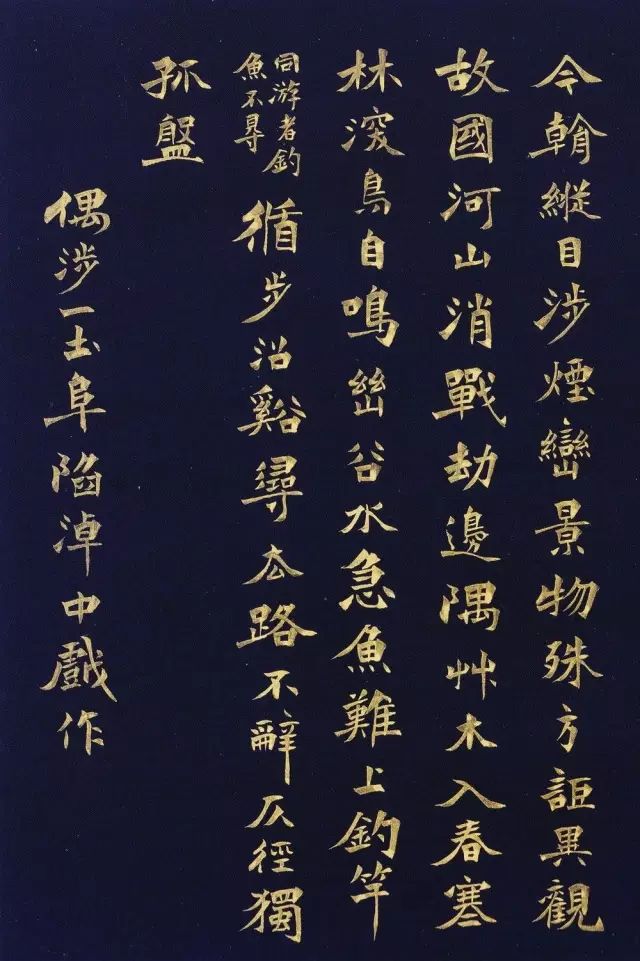 今朝縱目涉煙巒景物殊方詎異觀
故國河山消戰劫邊隅艸木入春寒
林深鳥自鳴幽谷水急魚難上釣竿
同游者釣
魚不㝵
循步沿谿尋去路不辭仄徑獨
孤盤
偶涉一土阜陷淖中戲作